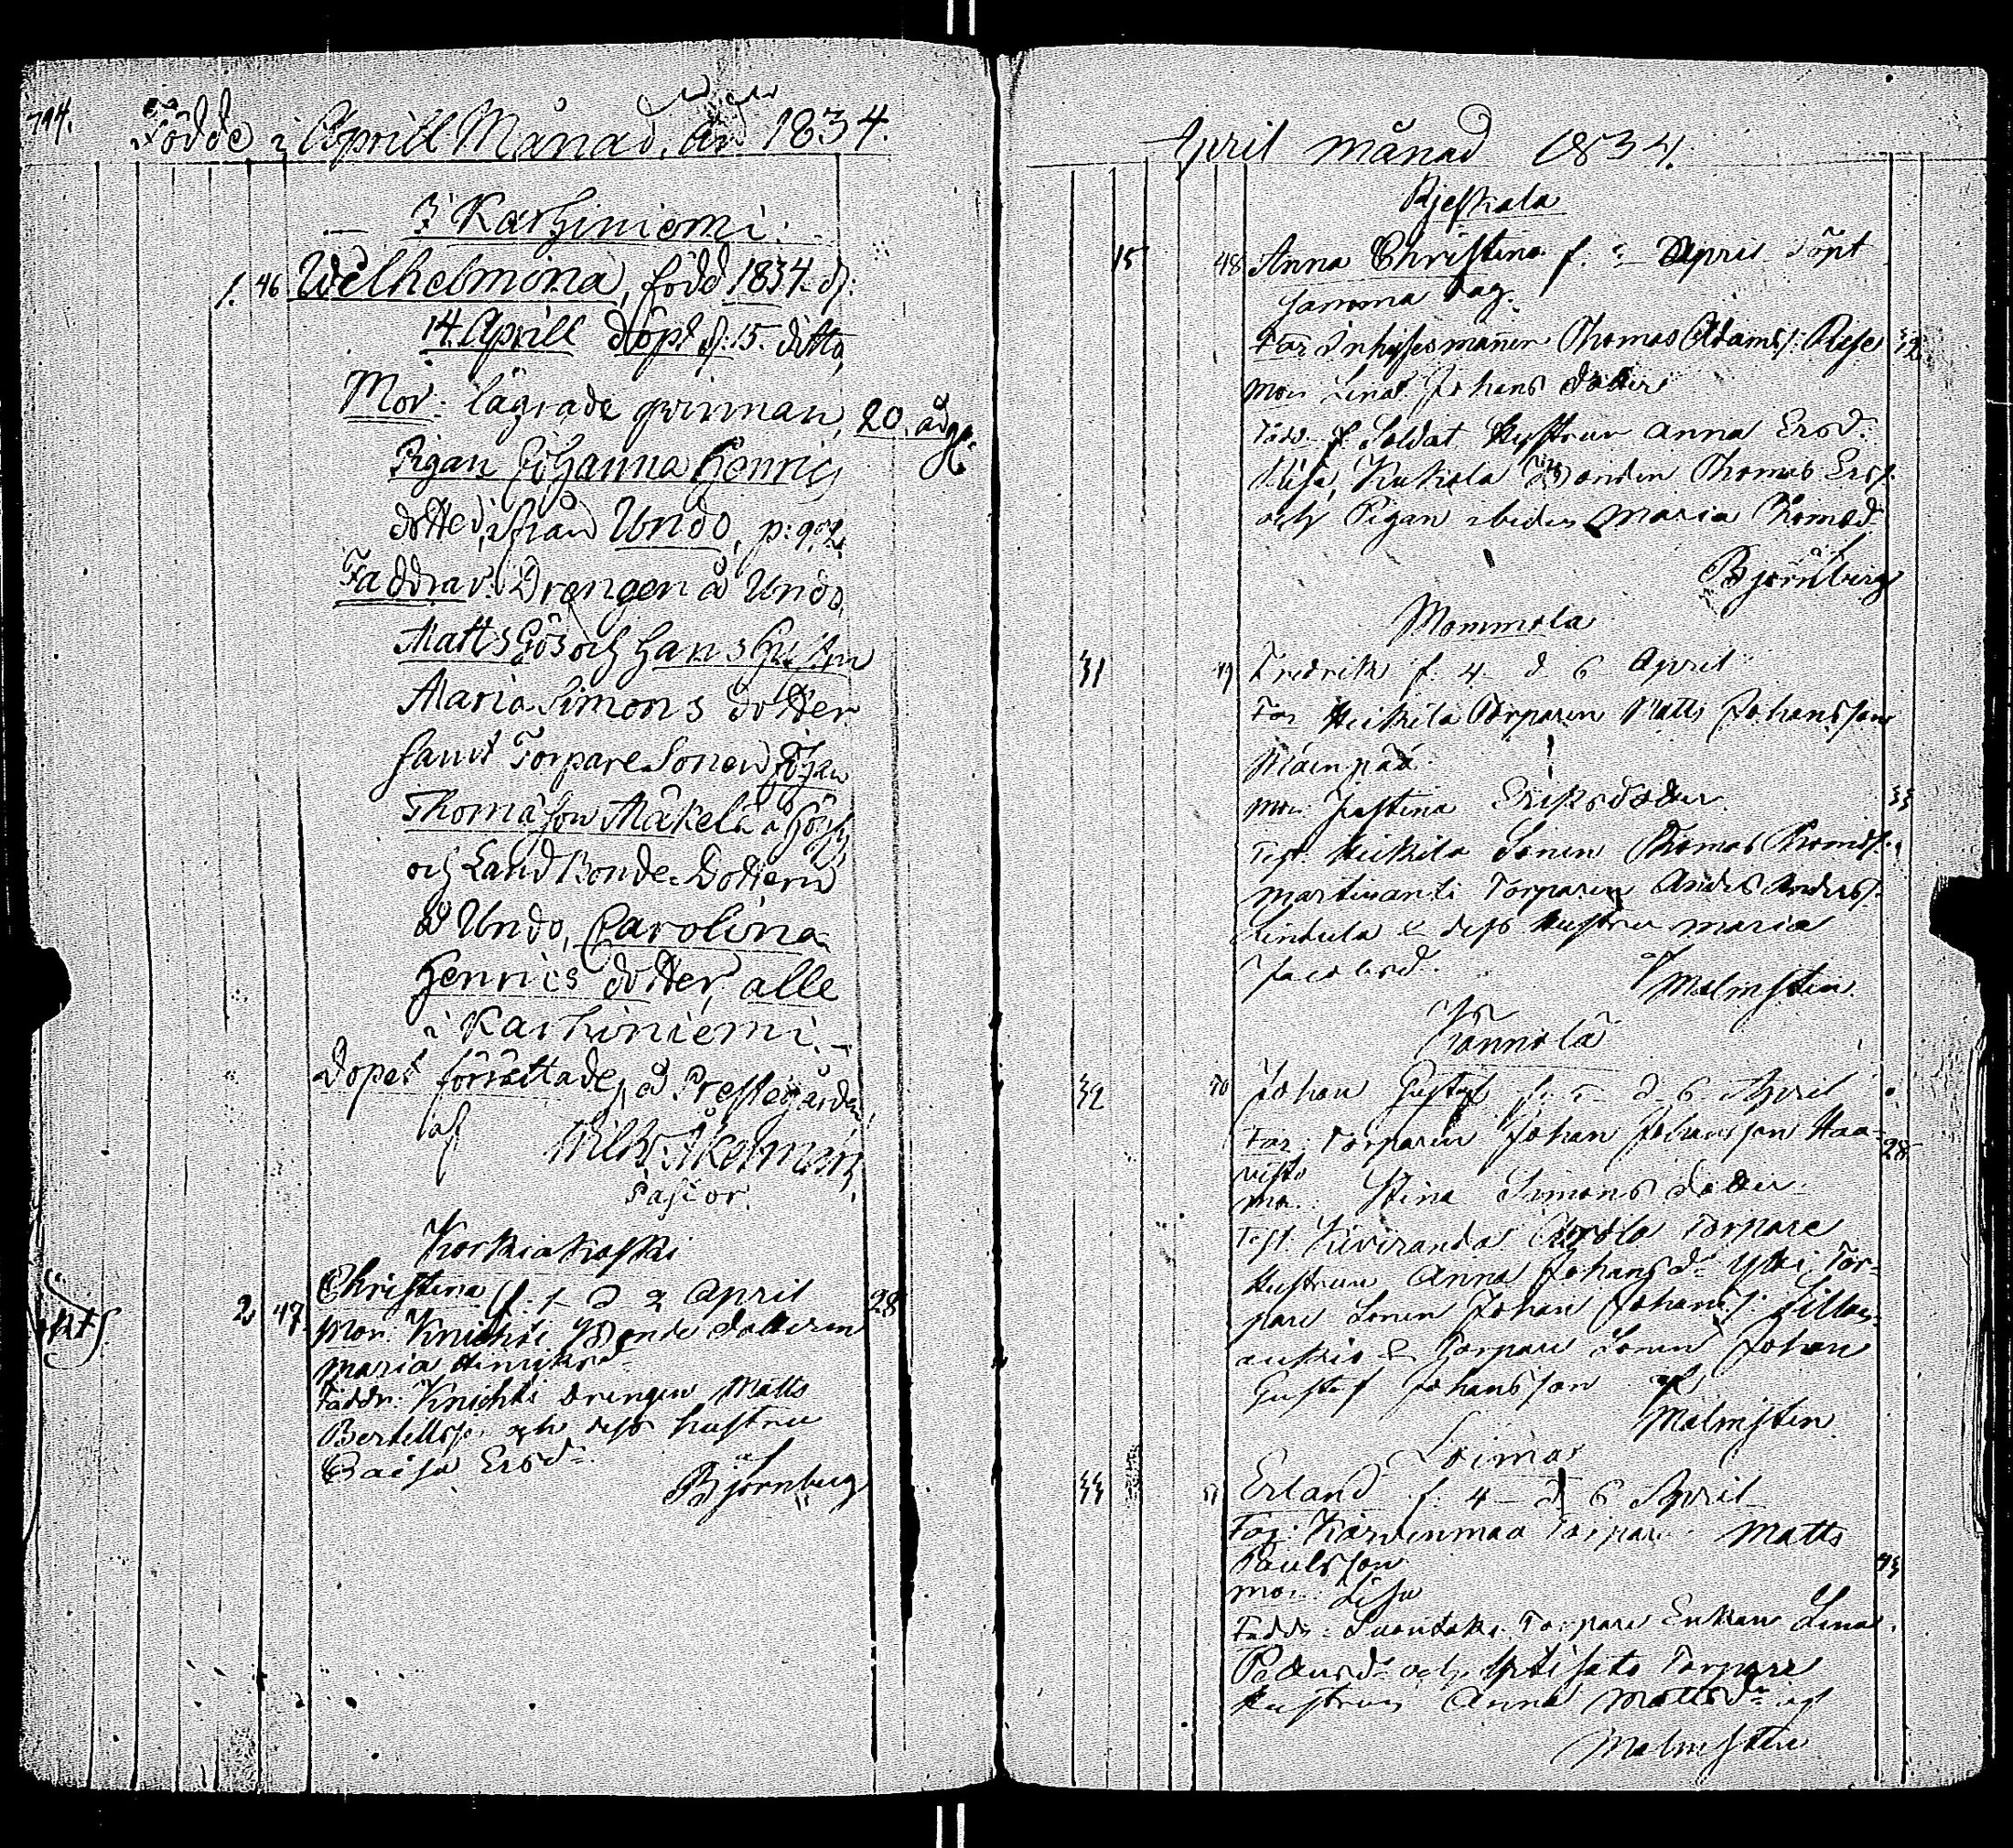 794. Födde i Aprill Månad, År 1834.
I Karhiniemi.
1. 46 Wilhelmina, född 1834. d:
14. Aprill döpt d: 15. ditto,
Mor: lägrade qvinnan, 20. år
Pigan Johanna Henrics
dotter, ifrån Undo, p: 902.
Faddrar: Drengen å Undo,
Matts och Hans Hustru
Maria Simons dotter
samt Torpare Sonen Johan
Thomasson Mäkelä
och LandBonde Dottern
å Undo, Carolina
Henrics dotter, alle
i Karhiniemi.
Dopet förrättades, å Prestegården,
af Wilh. Åkerman,
Pastor.
Korkiakoski
2 47 Christina f. 1 d 2 April 28
Mor: Knichti Bonde dottern
Maria Henriksd.
Faddr: Knichti Drengen Matts
Bertells. och dess hustru
Caisa Ersd.
af Björnberg
April månad 1834.
15 48 Anna Christina f. April döpt
samma dag.
Far Inhysesmannen Thomas Adams. 32
Mor Lena Johans dotter
Fadd. Soldat Hustrun Anna Ersd.
Kukola Bonden Thomas Ers.
och Pigan ibiden Maria Thomasd.
af Björnberg
Mommola
31 49 Fredrik f. 4 d 6 April
Far Heikkilä Torparen Matts Johansson
Mor: Justina Eriksdotter 33
Test. Heikkilä Sonen Thomas Thomæs.
Torparen Anders Anders.
& dess Hustru Maria
Jacobsd.
af Malmsten.
32 50 Johan Gustaf f. 5 d. 6 April
Far: Torparen Johan Johansson Haa- 28
visto
Mor: Stina Simons dotter
Test. Torpare
Hustrun Anna Johansd. Tor-
pare Sonen Johan Johans.
& Torpare Sonen Johan
Gustaf Johansson af
Malmsten.
Loimas
33 51 Erland f. 4 d 6 April
Far: Karvenmaa Torpare Matts
Paulsson 43
Mor: Lisa
Fadd: Torpare Enkan Lena
och Torpare
Hustrun Anna Mattsd. af
Malmsten